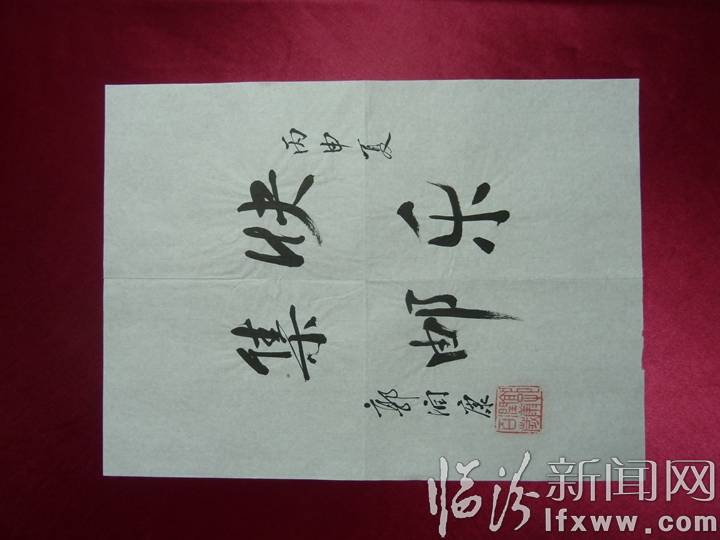 丙申夏
快乐
集邮
郭润康
临汾新闻网
lfxww.com